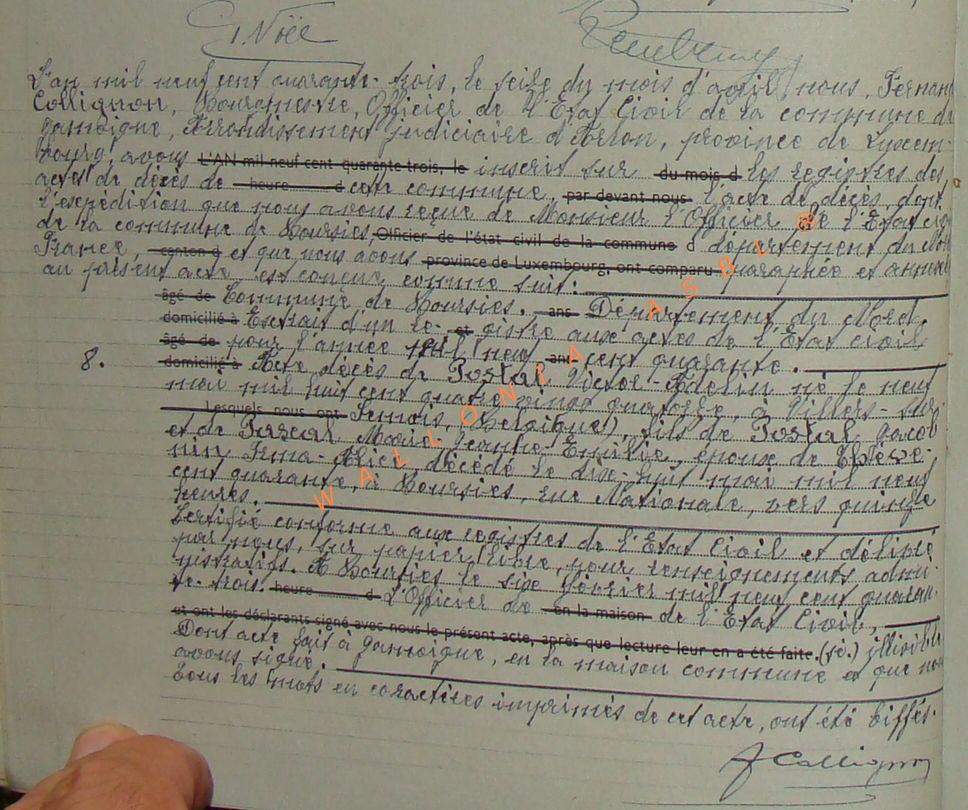 J. Noël
L'an mil neuf cent quarante-trois, le seize du mois d'avril, nous, Fernand
Collignon, Bourgmestre, Officier de l'Etat Civil de la commune de
Jamoigne, Arrondissement judiciaire d'Arlon, province de Luxem-
bourg, avons L'AN mil neuf cent quarante-trois, le inscrit sur du mois d les registres des
actes de décès de heure d cette commune, par devant nous l'acte de décès, dont
l'expédition que nous avons reçue de Monsieur l'Officier de l'Etat civil
de la commune de Boursies, Officier de l'état civil de la commune d département du Nord
France, canton d et que nous avons province de Luxembourg, ont comparu paraphée et annexée
au présent acte est conçue comme suit:
âgé de Commune de Boursies. ans Département du Nord.
domicilié à Extrait d'un re- et gistre aux actes de l'Etat Civil
âgé de pour l'année mil neuf ans cent quarante.
8. domicilié à Acte décès de Postal Victor-Adelin né le neuf
mai mil huit cent quatre vingt quatorze, à Villers-sur-
Lesquels nous ont Semois, (Belgique), fils de Postal Jacob
et de Pascal Marie Jeanne Emilie, époux de Thève-
nin Irma-Alice, décédé le dix-huit mai mil neuf
cent quarante, à Boursies, rue Nationale, vers quinze
heures.
Certifié conforme aux registres de l'Etat Civil et délivré
par nous, sur papier libre, pour renseignements admi-
nistratifs. A Boursies le six février mil neuf cent quaran-
te-trois. heure d L'Officier de en la maison de l'Etat Civil,
et ont les déclarants signé avec nous le présent acte, après que lecture leur en a été faite. (sé.) illisible
Dont acte fait à Jamoigne, en la maison commune et que nous
avons signé.
Tous les mots en caractères imprimés de cet acte, ont été biffés.
F Collignon
WALLONIA ASBL @